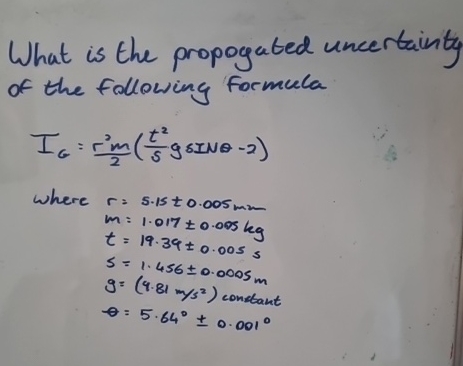 What is the propogated uncertainty
of the following formula
I_G = r²m/2 (t²/s g SINθ - 2)
where r = 5.15 ± 0.005 mm
m = 1.017 ± 0.005 kg
t = 19.39 ± 0.005 s
s = 1.456 ± 0.0005 m
g = (9.81 m/s²) constant
θ = 5.64° ± 0.001°